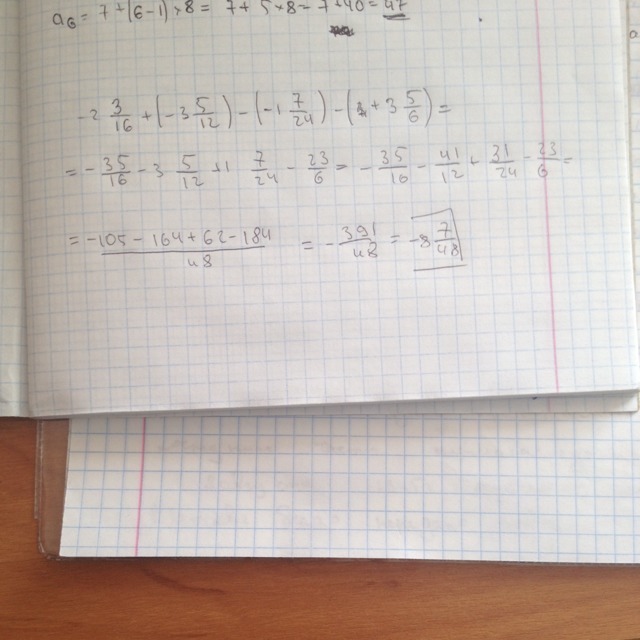 a₆ = 7 + (6-1) × 8 = 7 + 5 × 8 = 7 + 40 = 47
-2 3/16 + (-3 5/12) - (-1 7/24) - (+3 5/6) =
= -35/16 - 3 5/12 + 1 7/24 - 23/6 = -35/16 - 41/12 + 31/24 - 23/6 =
= -105 - 164 + 62 - 184 / 48 = -391/48 = -8 7/48